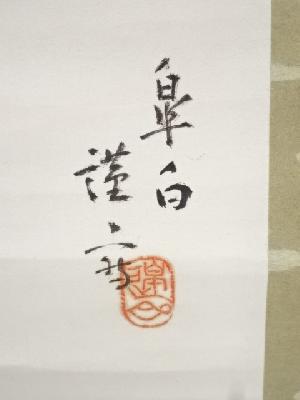 皐白
謹写